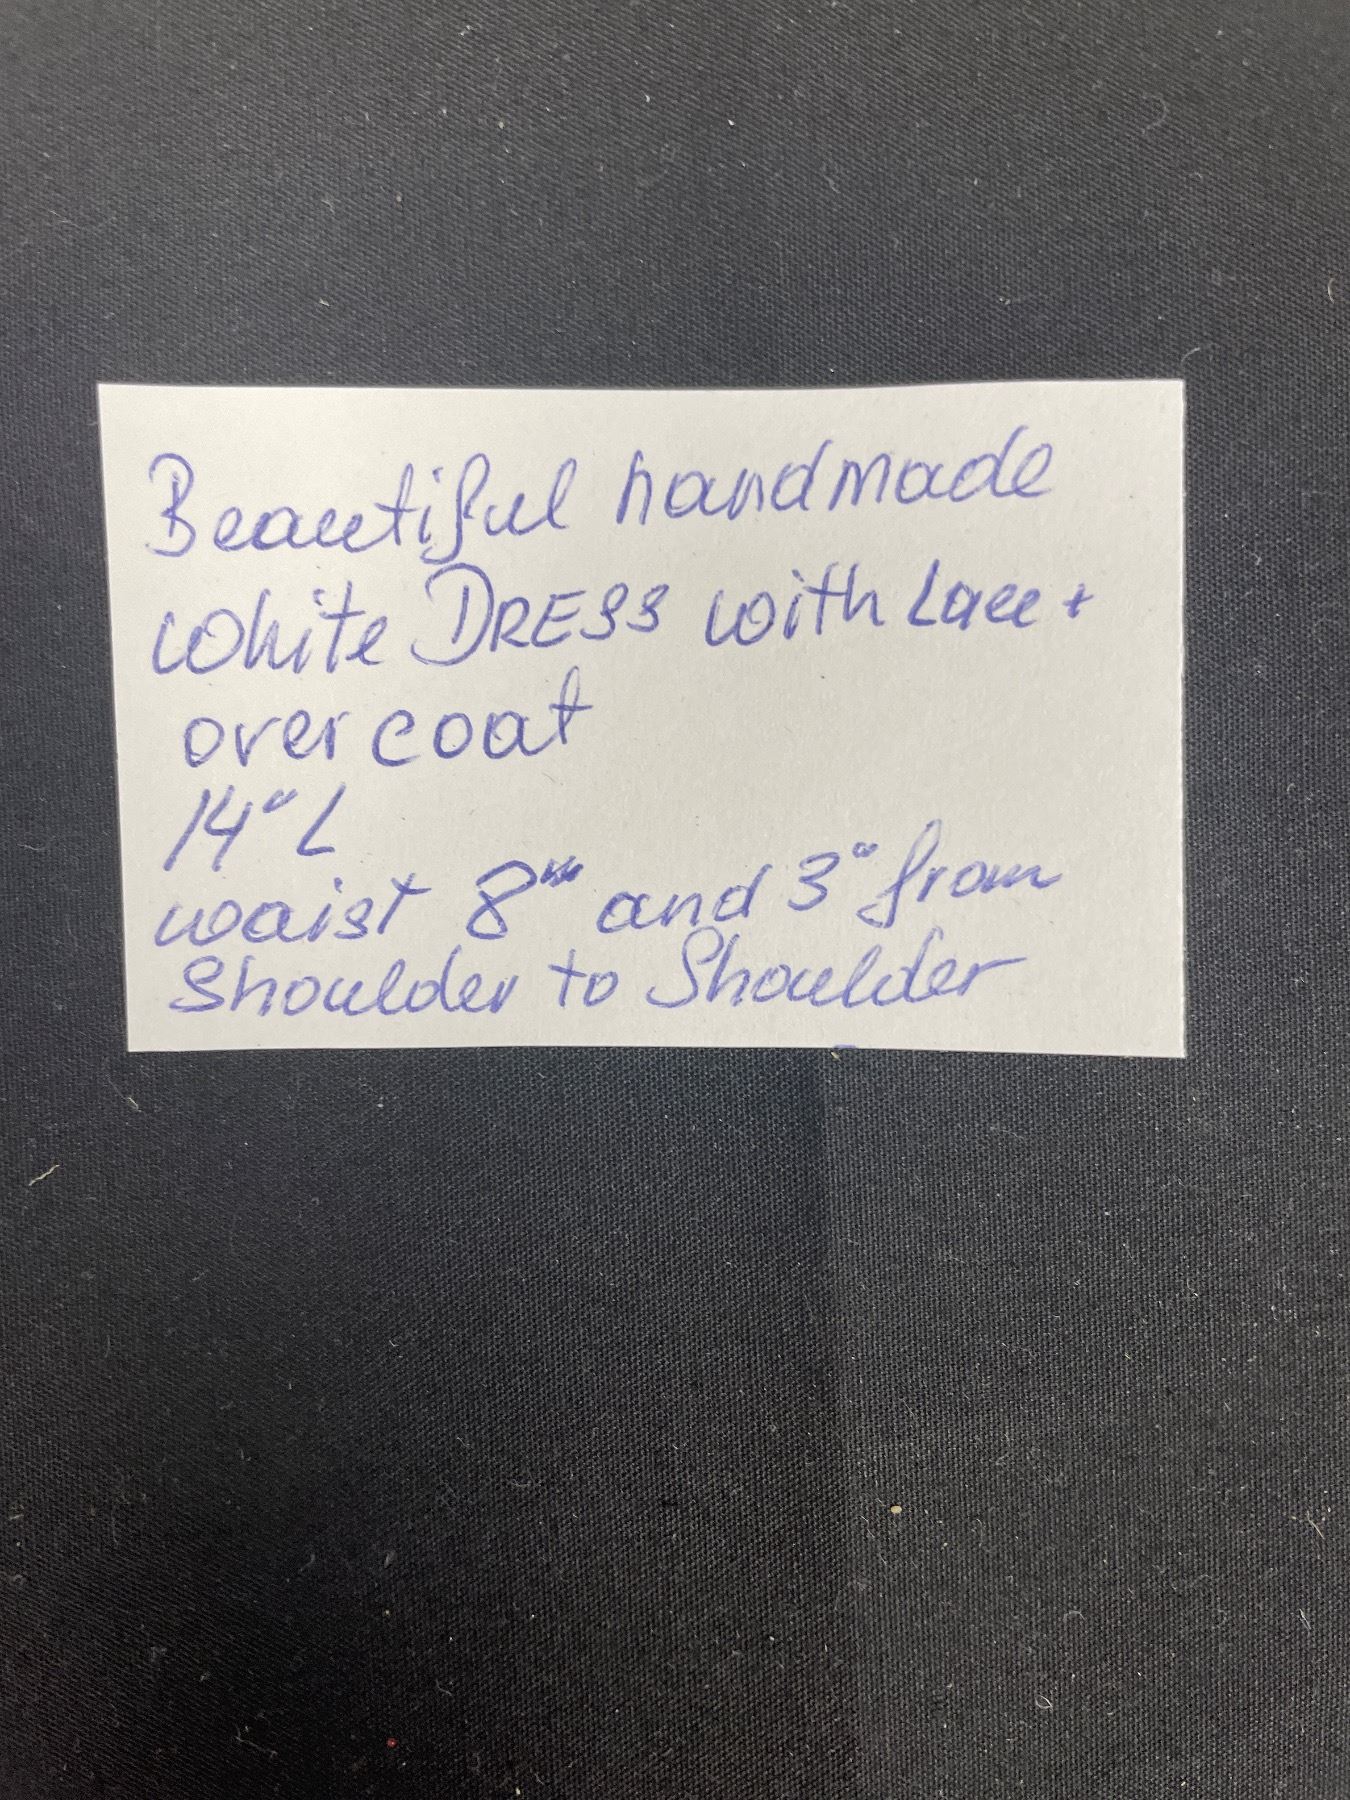 Beautiful handmade
white DRESS with Lace +
over coat
14" L
waist 8" and 3" from
Shoulder to Shoulder